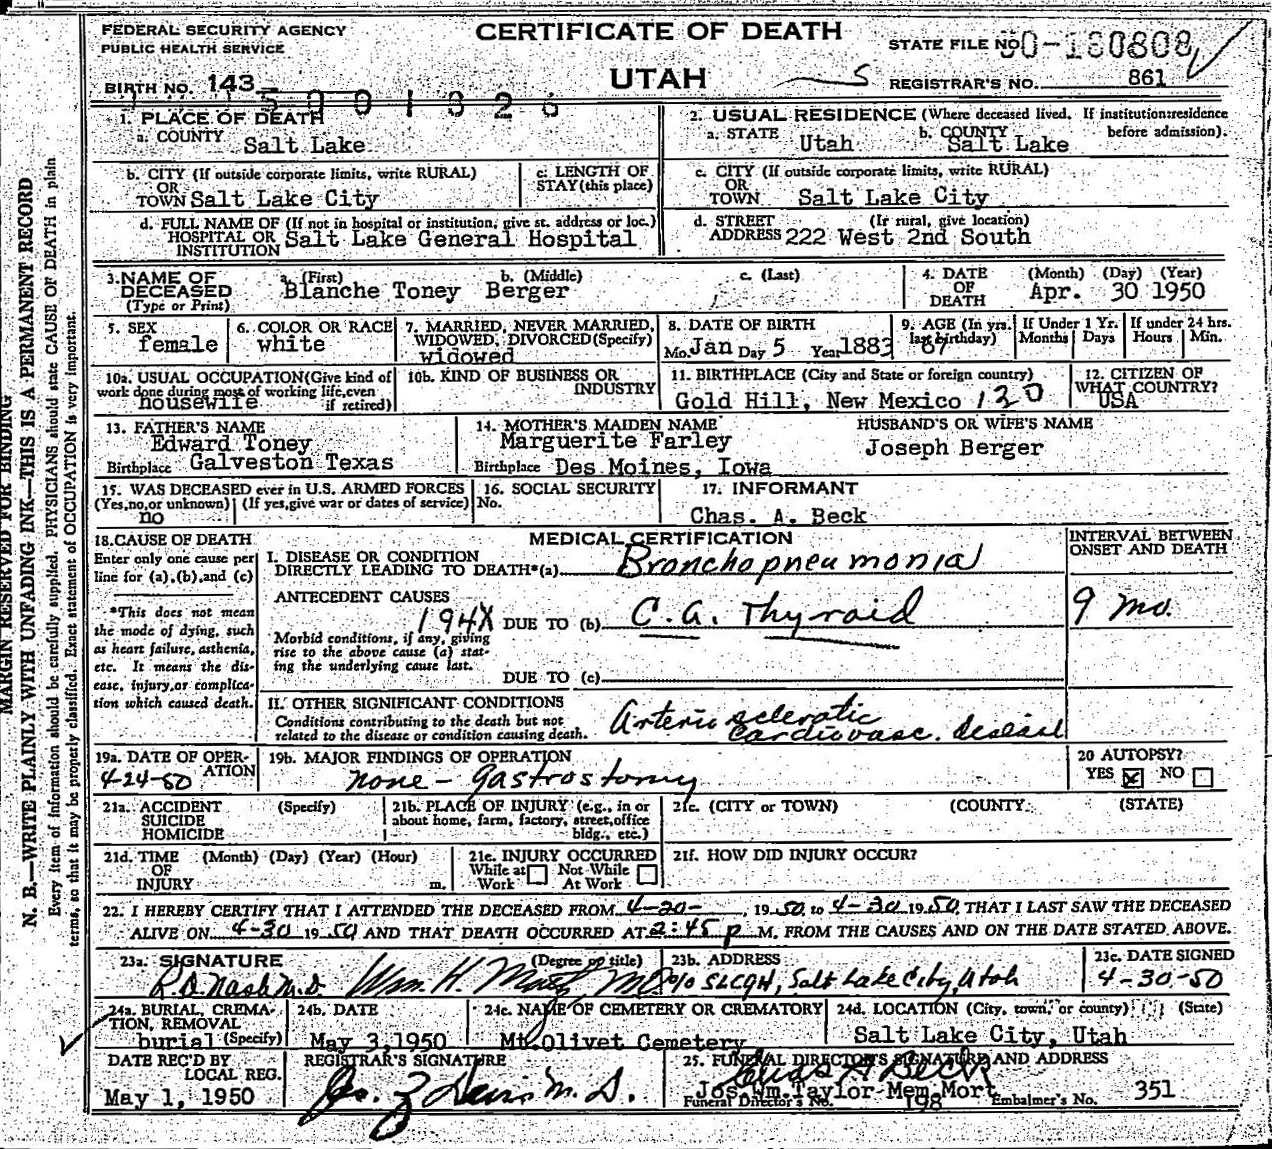 FEDERAL SECURITY AGENCY
PUBLIC HEALTH SERVICE
CERTIFICATE OF DEATH
UTAH
STATE FILE NO.
REGISTRAR'S NO. 861
BIRTH NO. 143
1. PLACE OF DEATH
a. COUNTY
Salt Lake
2. USUAL RESIDENCE (Where deceased lived. If institution:residence before admission).
a. STATE Utah
b. COUNTY Salt Lake
b. CITY (If outside corporate limits, write RURAL)
OR
TOWN Salt Lake City
c. LENGTH OF
STAY (this place)
c. CITY (If outside corporate limits, write RURAL)
OR
TOWN Salt Lake City
d. FULL NAME OF (If not in hospital or institution, give st. address or loc.)
HOSPITAL OR
INSTITUTION Salt Lake General Hospital
d. STREET (If rural, give location)
ADDRESS 222 West 2nd South
3. NAME OF
DECEASED
(Type or Print)
a. (First) b. (Middle) c. (Last)
Blanche Toney Berger
4. DATE
OF
DEATH
(Month) (Day) (Year)
Apr. 30 1950
5. SEX
female
6. COLOR OR RACE
white
7. MARRIED, NEVER MARRIED,
WIDOWED, DIVORCED (Specify)
widowed
8. DATE OF BIRTH
Mo. Jan Day 5 Year 1883
9. AGE (In yrs.
last birthday)
67
If Under 1 Yr.
Months Days
If under 24 hrs.
Hours Min.
10a. USUAL OCCUPATION (Give kind of
work done during most of working life, even
if retired)
housewife
10b. KIND OF BUSINESS OR
INDUSTRY
11. BIRTHPLACE (City and State or foreign country)
Gold Hill, New Mexico 130
12. CITIZEN OF
WHAT COUNTRY?
USA
13. FATHER'S NAME
Edward Toney
Birthplace Galveston Texas
14. MOTHER'S MAIDEN NAME
Marguerite Farley
Birthplace Des Moines, Iowa
HUSBAND'S OR WIFE'S NAME
Joseph Berger
15. WAS DECEASED ever in U.S. ARMED FORCES
(Yes, no, or unknown) (If yes, give war or dates of service)
no
16. SOCIAL SECURITY
No.
17. INFORMANT
Chas. A. Beck
18. CAUSE OF DEATH
Enter only one cause per
line for (a), (b), and (c)
*This does not mean
the mode of dying, such
as heart failure, asthenia,
etc. It means the dis-
ease, injury, or complica-
tion which caused death.
MEDICAL CERTIFICATION
I. DISEASE OR CONDITION
DIRECTLY LEADING TO DEATH*(a) Bronchopneumonia
ANTECEDENT CAUSES
194X DUE TO (b) C.A. Thyroid
Morbid conditions, if any, giving
rise to the above cause (a) stat-
ing the underlying cause last.
DUE TO (c)
INTERVAL BETWEEN
ONSET AND DEATH
9 mo.
II. OTHER SIGNIFICANT CONDITIONS
Conditions contributing to the death but not
related to the disease or condition causing death.
Arteriosclerotic
cardiovasc. disease
19a. DATE OF OPER-
ATION
4-24-50
19b. MAJOR FINDINGS OF OPERATION
none - Gastrostomy
20 AUTOPSY?
YES NO
21a. ACCIDENT
SUICIDE
HOMICIDE
(Specify)
21b. PLACE OF INJURY (e.g., in or
about home, farm, factory, street, office
bldg., etc.)
21c. (CITY or TOWN) (COUNTY) (STATE)
21d. TIME
OF
INJURY
(Month) (Day) (Year) (Hour)
m.
21e. INJURY OCCURRED
While at Work
Not While At Work
21f. HOW DID INJURY OCCUR?
22. I HEREBY CERTIFY THAT I ATTENDED THE DECEASED FROM 4-20-, 1950 to 4-30 1950, THAT I LAST SAW THE DECEASED
ALIVE ON 4-30 1950 AND THAT DEATH OCCURRED AT 2:45 p M. FROM THE CAUSES AND ON THE DATE STATED ABOVE.
23a. SIGNATURE (Degree or title)
R.D. Nash M.D. Wm. H.
23b. ADDRESS
c/o SLCGH, Salt Lake City, Utah
23c. DATE SIGNED
4-30-50
24a. BURIAL, CREMA-
TION, REMOVAL
burial (Specify)
24b. DATE
May 3, 1950
24c. NAME OF CEMETERY OR CREMATORY
Mt. Olivet Cemetery
24d. LOCATION (City, town, or county) (State)
Salt Lake City, Utah
DATE REC'D BY
LOCAL REG.
May 1, 1950
REGISTRAR'S SIGNATURE
25. FUNERAL DIRECTOR'S SIGNATURE AND ADDRESS
Chas A Beck
Jos. Wm. Taylor Mem. Mort
Funeral Director's No. 198 Embalmer's No. 351
MARGIN RESERVED FOR BINDING
N. B.—WRITE PLAINLY WITH UNFADING INK—THIS IS A PERMANENT RECORD
Every item of information should be carefully supplied. PHYSICIANS should state CAUSE OF DEATH in plain
terms, so that it may be properly classified. Exact statement of OCCUPATION is very important.